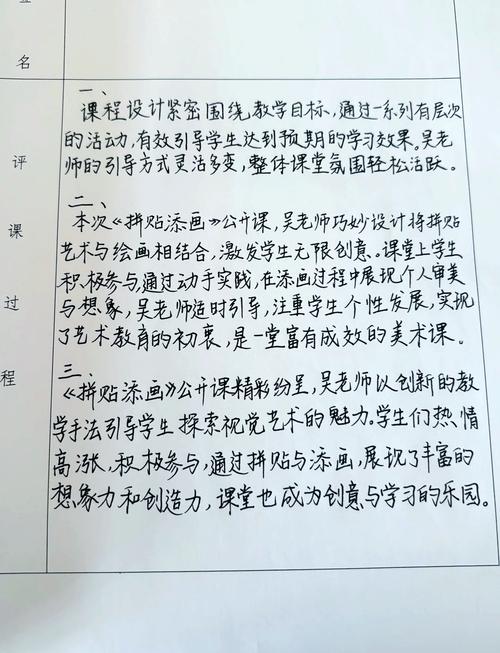 名
评
课
过
程
一、
课程设计紧密围绕教学目标,通过一系列有层次
的活动,有效引导学生达到预期的学习效果。吴老
师的引导方式灵活多变,整体课堂氛围轻松活跃。
二、
本次《拼贴添画》公开课,吴老师巧妙设计将拼贴
艺术与绘画相结合,激发学生无限创意。课堂上学生
积极参与,通过动手实践,在添画过程中展现个人审美
与想象,吴老师适时引导,注重学生个性发展,实现
了艺术教育的初衷,是一堂富有成效的美术课。
三、
《拼贴添画》公开课精彩纷呈,吴老师以创新的教
学手法引导学生探索视觉艺术的魅力。学生们热情
高涨,积极参与,通过拼贴与添画,展现了丰富的
想象力和创造力,课堂也成为创意与学习的乐园。